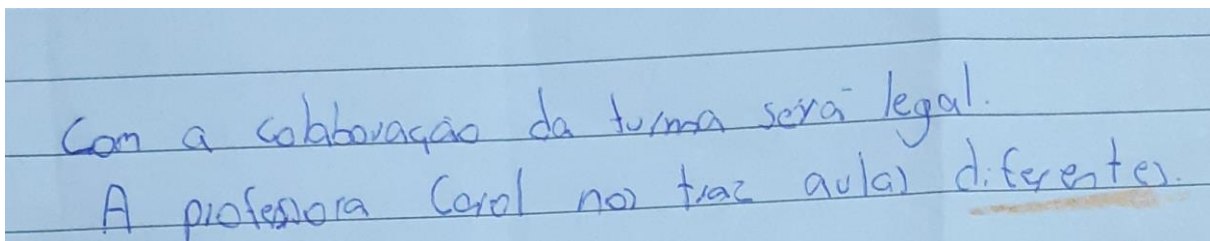 Com a colaboração da turma será legal.
A professora Carol nos traz aulas diferentes.